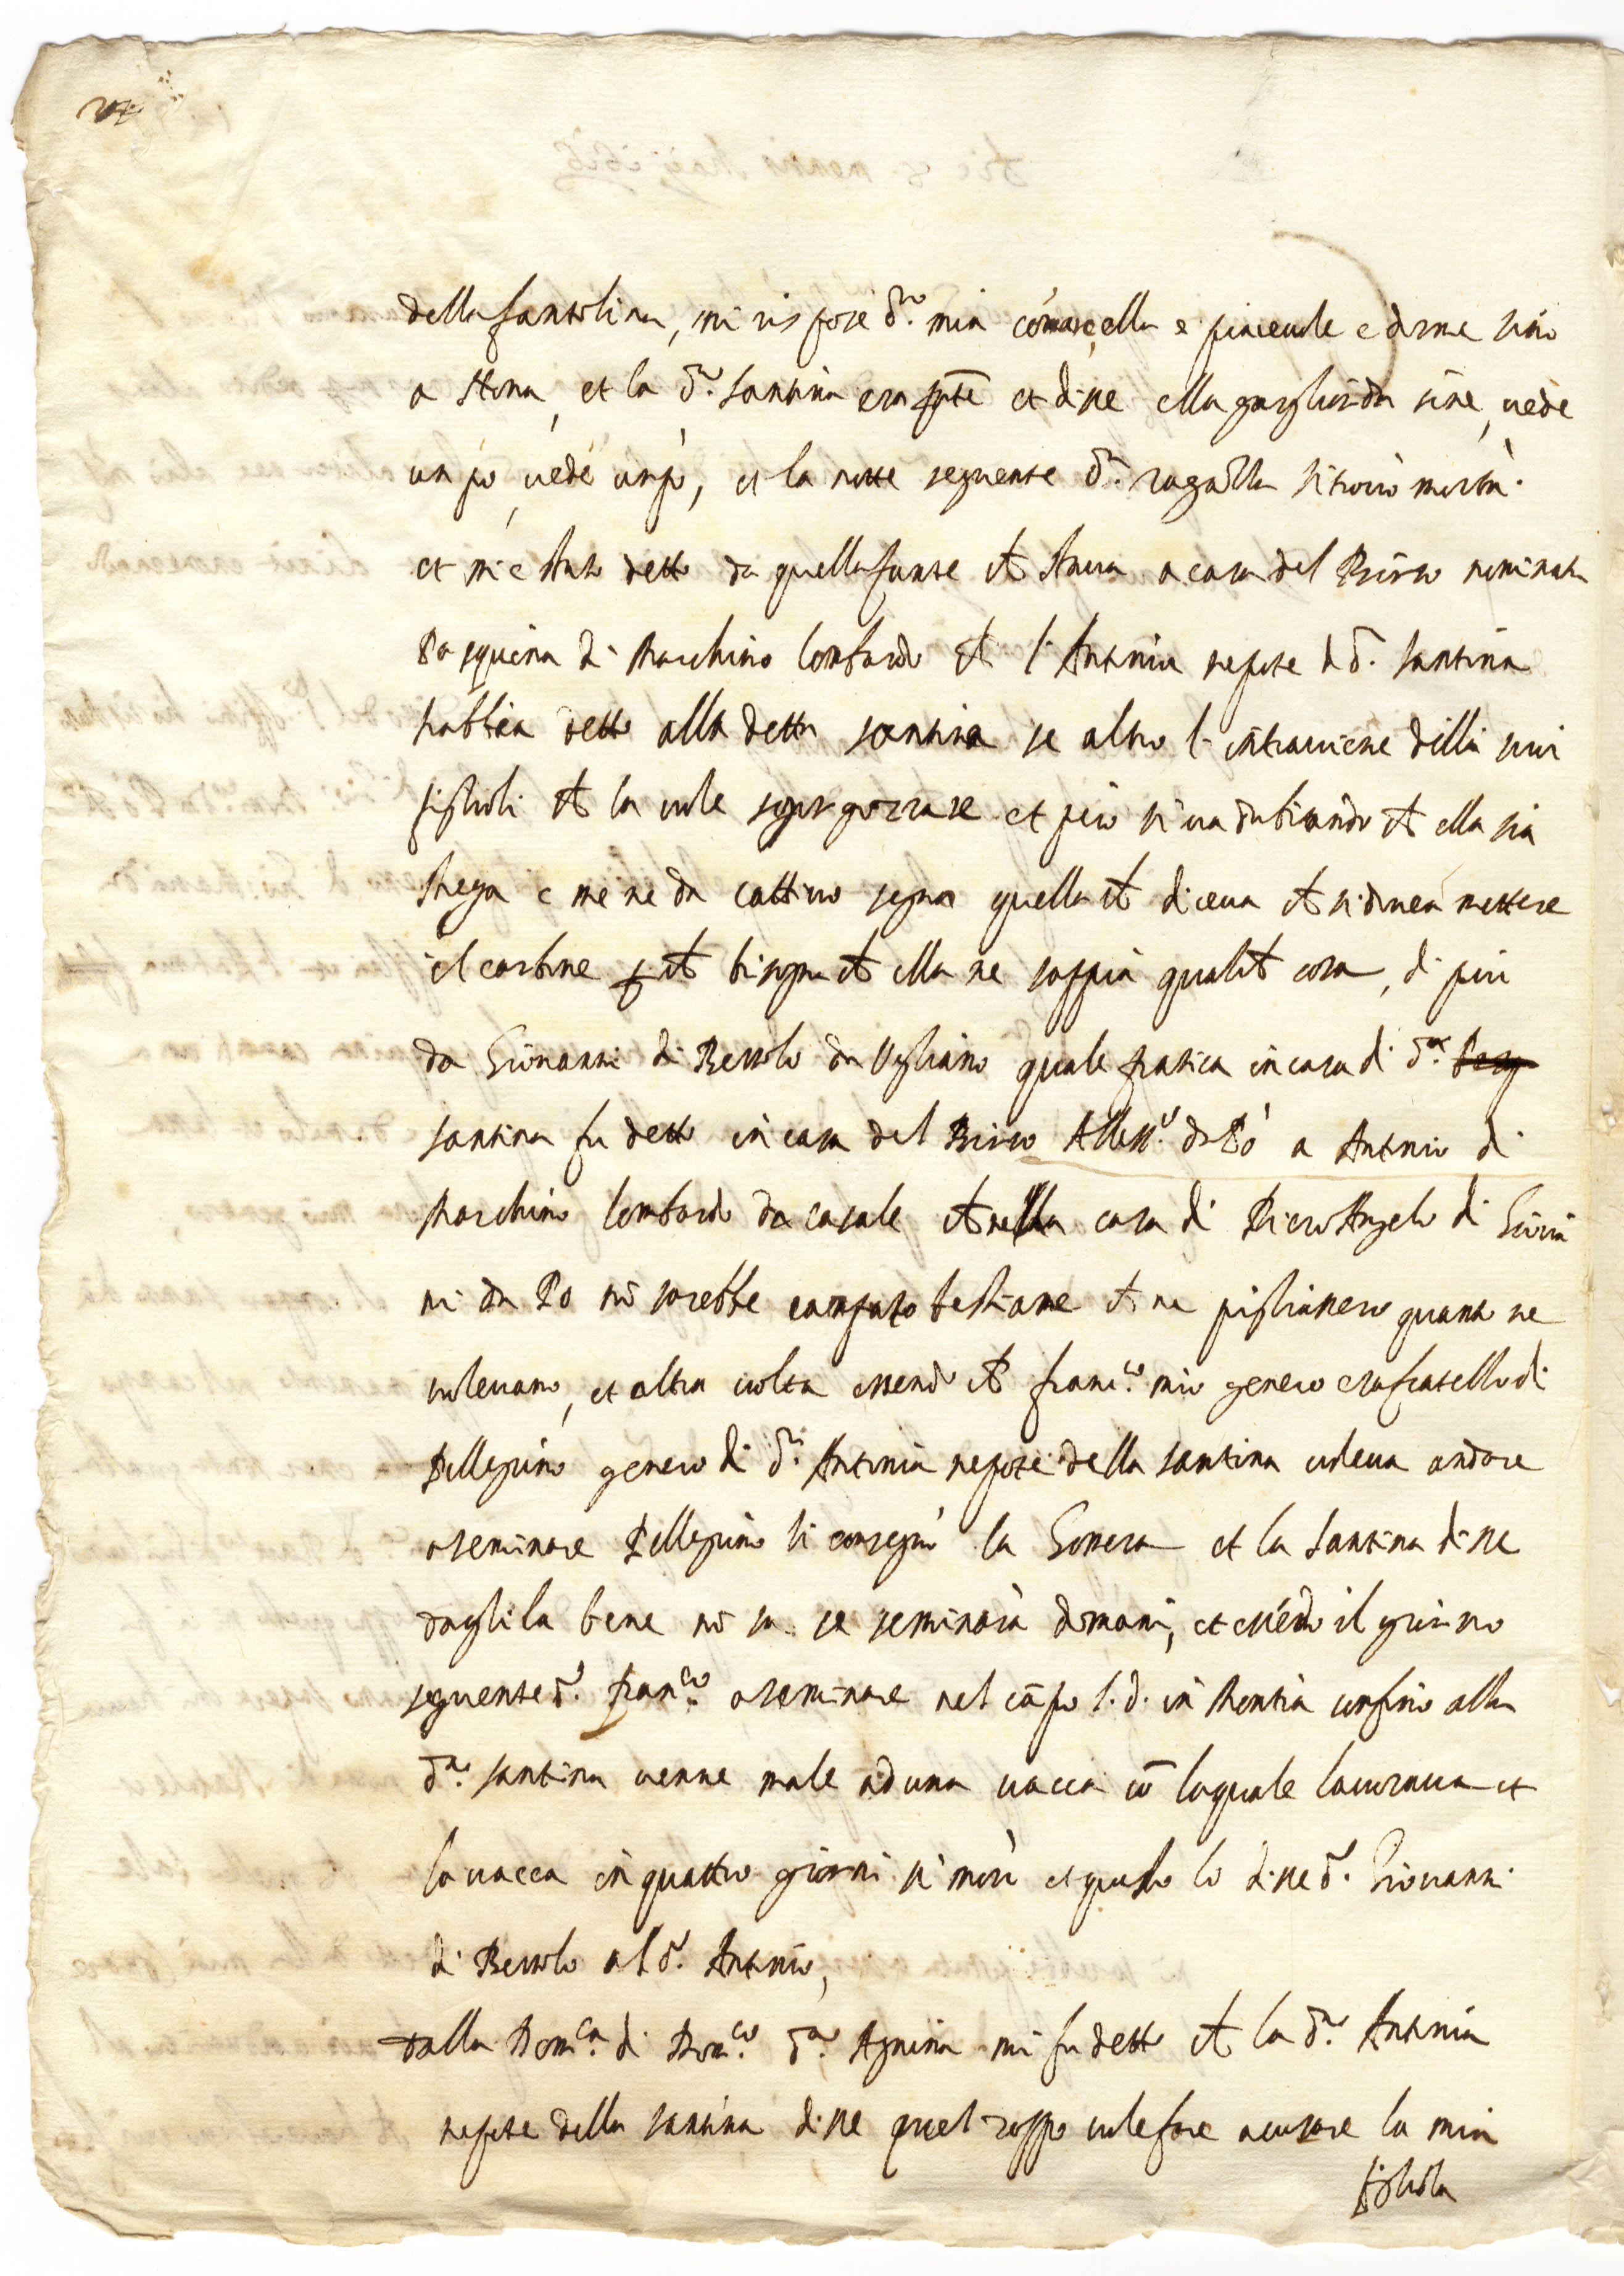 della fantolina, mi rispose d.ª mia comare, ella e piaceuole e dorme sino
a Nona, et la d.ª Santina era pnte et disse ella gagliarda sine, uede
un po, uede un po, et la notte seguente d.ª ragazza si trouò morta.
et mi e stato detto da quella fante ch staua a casa del Birro nominata
Pasquina di Marchino lombardo ch l'Antonia nepote d d. Santina
habbia detto alla detta santina se altro l'intrauiene delli suoi
figlioli ch la uole et però si ua dubitando ch ella sia
strega e me ne da cattiuo segno quella ch diceua ch si douea mettere
il carbone p ch bisogna ch ella ne sappia qualch cosa, di più
da Giouanni di Bertolo da Vigliano quale pratica in casa di d.ª
santina fu detto in casa del Birro Aless.º da Pò a Antonio di
Marchino lombardo da casale ch nella casa di Piero Angelo di Gioua
ni da Po nō sarebbe campato bestiame ch ne pigliassero quanto ne
uoleuano, et altra uolta essendo ch franc.º mio genero era fratello di
Pellegrino genero di d.ª Antonia nepote della santina uoleua andare
a seminare Pellegrino li consegnò la et la Santina disse
dagli la bene nō sa se seminarà domani, et essēdo il giorno
seguente d.º franc.º a seminare nel cāpo l. d. in confino alla
d.ª santina uenne male ad una uacca cō la quale lauoraua et
la uacca in quattro giorni si morì et questo lo disse d.º Giouanni
di Bertolo al d.º Antonio,
dalla Dom.ca di Dom.co d.ª Agnina mi fu detto ch la d.ª Antonia
nepote della santina disse quel zoppo uole fare acusare la mia
figliola